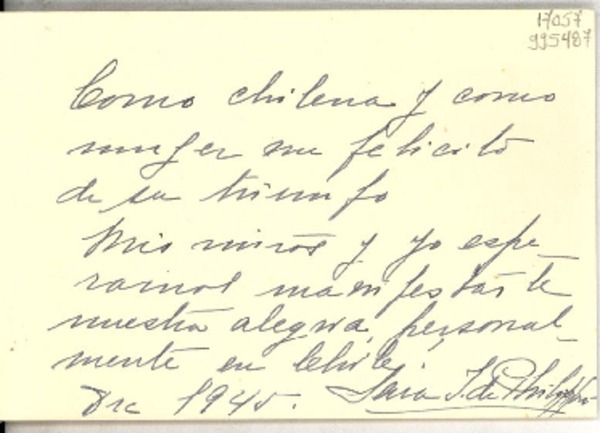 17057
995487
Como chilena y como
mujer me felicito
de su triunfo
Mis niños y yo espe
ramos manifestarte
nuestra alegria, personal-
mente en Chile,
Dic 1945. Sara I. de Philippi